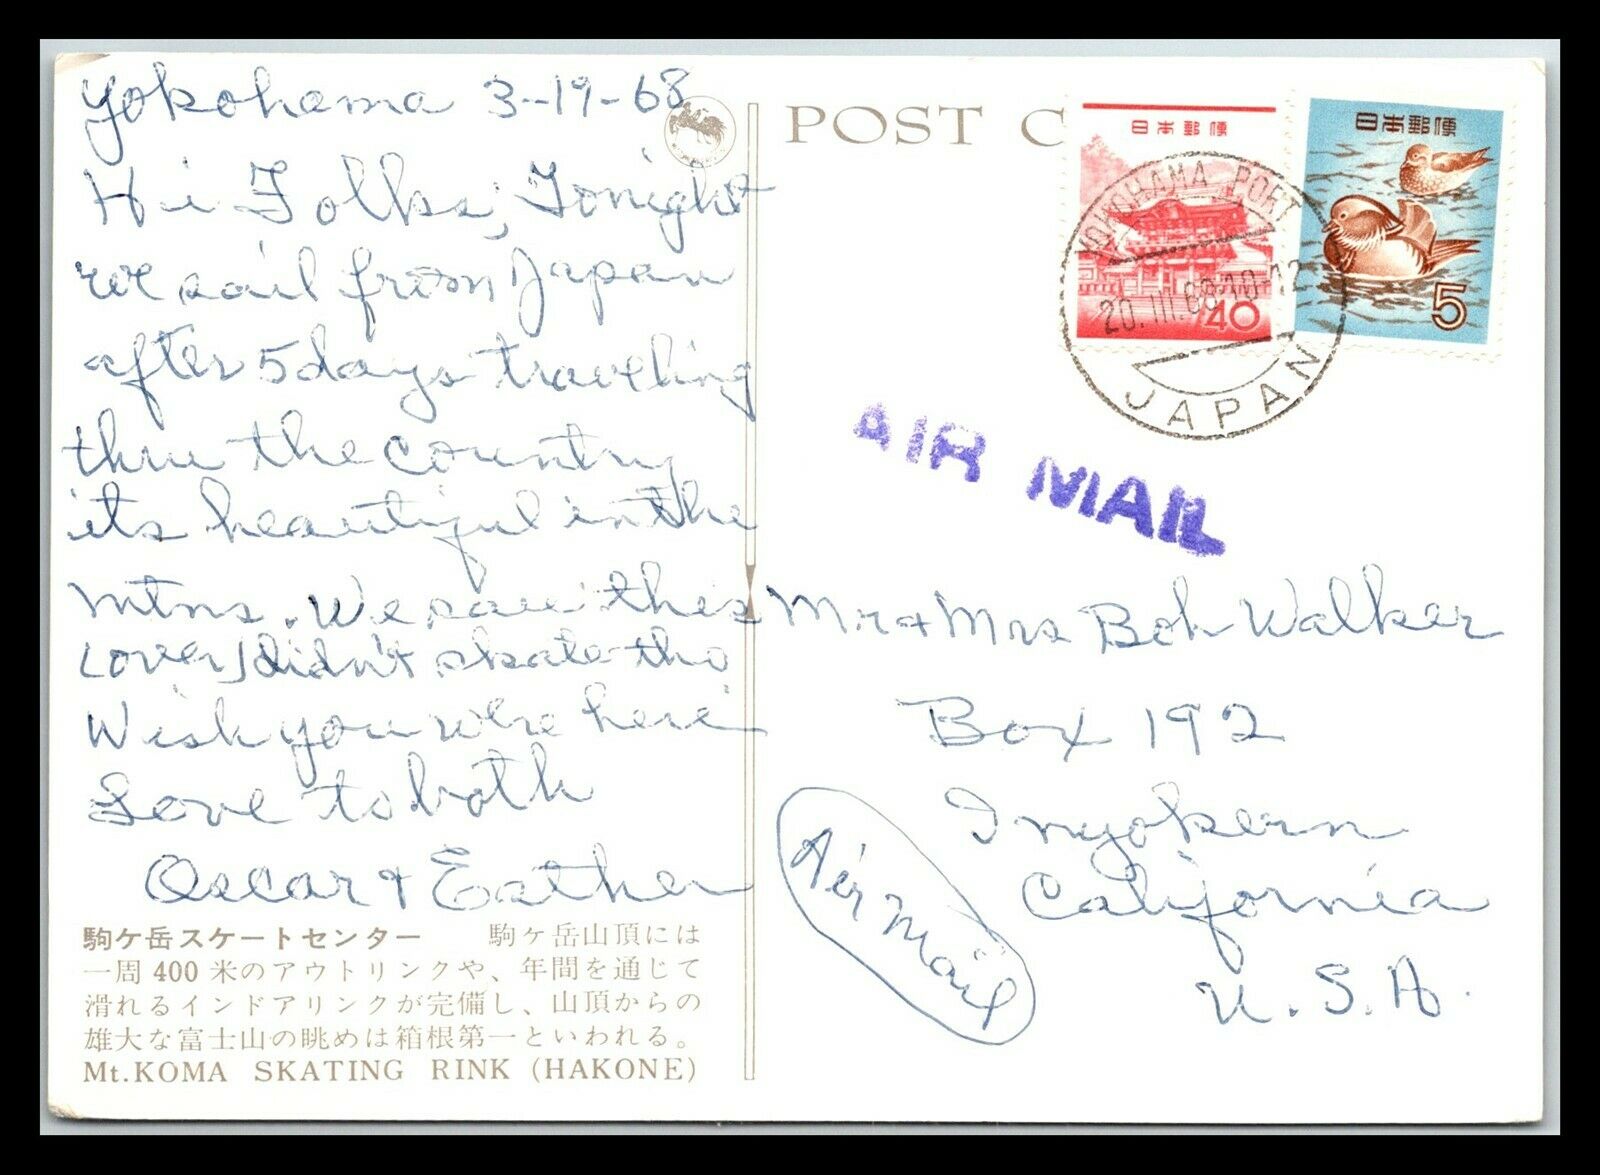 Yokohama 3-19-68
Hi Folks, Tonight
we sail from Japan
after 5 days traveling
thru the country
its beautiful in the
mtns. We saw this
cover, didn't skate tho
Wish you were here
Love to both
Oscar + Esther
駒ケ岳スケートセンター 駒ケ岳山頂には
一周400米のアウトリンクや、年間を通じて
滑れるインドアリンクが完備し、山頂からの
雄大な富士山の眺めは箱根第一といわれる。
Mt.KOMA SKATING RINK (HAKONE)
POST C
日本郵便
40
日本郵便
5
YOKOHAMA PORT
20.III.68.10-12
JAPAN
AIR MAIL
Mr + Mrs Bob Walker
Box 192
Inyokern
California
U.S.A.
Air Mail